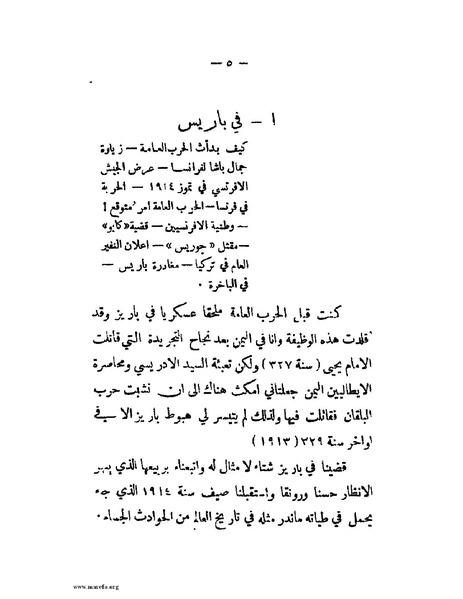 — ٥ —
١ — في باريس
كيف بدأت الحرب العامة — زيارة
جمال باشا لفرانسا — عرض الجيش
الافرنسي في تموز ١٩١٤ — الحرية
في فرنسا — الحرب العامة امر متوقع !
— وطنية الافرنسيين — قضية «كايو»
— مقتل «جوريس» — اعلان النفير
العام في تركيا — مغادرة باريس —
في الباخرة .
كنت قبل الحرب العامة ملحقا عسكريا في باريز وقد
قلدت هذه الوظيفة وانا في اليمن بعد نجاح التجريدة التي قاتلت
الامام يحيى (سنة ٣٢٧) ولكن تعبئة السيد الادريسي ومحاصرة
الايطاليين اليمن جعلتاني امكث هناك الى ان نشبت حرب
البلقان فقاتلت فيها ولذلك لم يتيسر لي هبوط باريز الا في
اواخر سنة ٣٢٩ (١٩١٣)
قضينا في باريز شتاء لا مثال له واتبعناه بربيعها الذي يبهر
الانظار حسنا ورونقا واستقبلنا صيف سنة ١٩١٤ الذي جاء
يحمل في طياته ماندر مثله في تاريخ العالم من الحوادث الجساء .
www.marefa.org